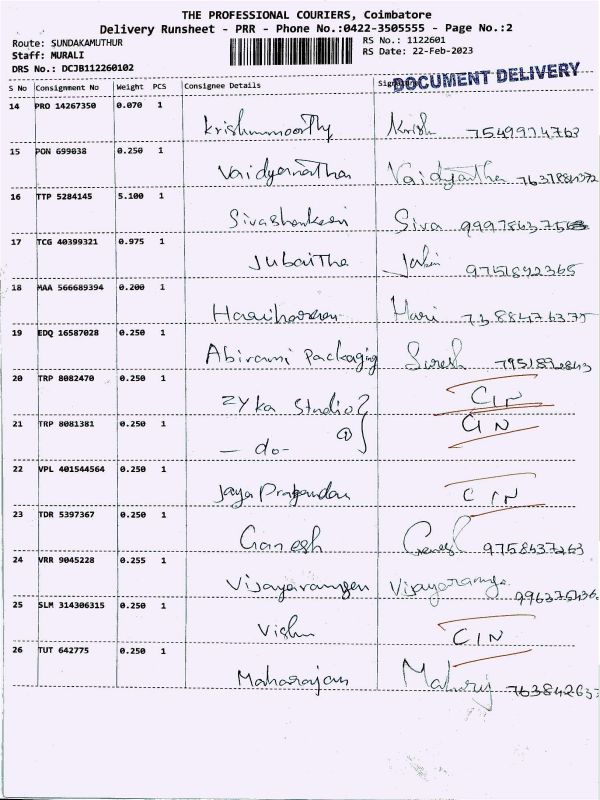 THE PROFESSIONAL COURIERS, Coimbatore
Delivery Runsheet - PRR - Phone No.:0422-3505555 - Page No.:2
Route: SUNDAKAMUTHUR
Staff: MURALI
DRS No.: DCJB112260102
RS No.: 1122601
RS Date: 22-Feb-2023
DOCUMENT DELIVERY
S No Consignment No Weight PCS Consignee Details
14 PRO 14267350 0.070 1 Krishnamoorthy Krish
15 PON 699038 0.250 1 Vaidyanathan Vaidyantha
16 TTP 5284145 5.100 1 Siva
17 TCG 40399321 0.975 1 Jubaitha 9751892365
18 MAA 566689394 0.200 1 Hariharan Hari
19 EDQ 16587028 0.250 1 Abirami Packaging Suresh
20 TRP 8082470 0.250 1 Zyka Studio CIN
21 TRP 8081381 0.250 1 - do - CIN
22 VPL 401544564 0.250 1 Jaya CIN
23 TDR 5397367 0.250 1 Ganesh Ganesh 9758437263
24 VRR 9045228 0.255 1
25 SLM 314306315 0.250 1 Vishnu CIN
26 TUT 642775 0.250 1 Maharajan